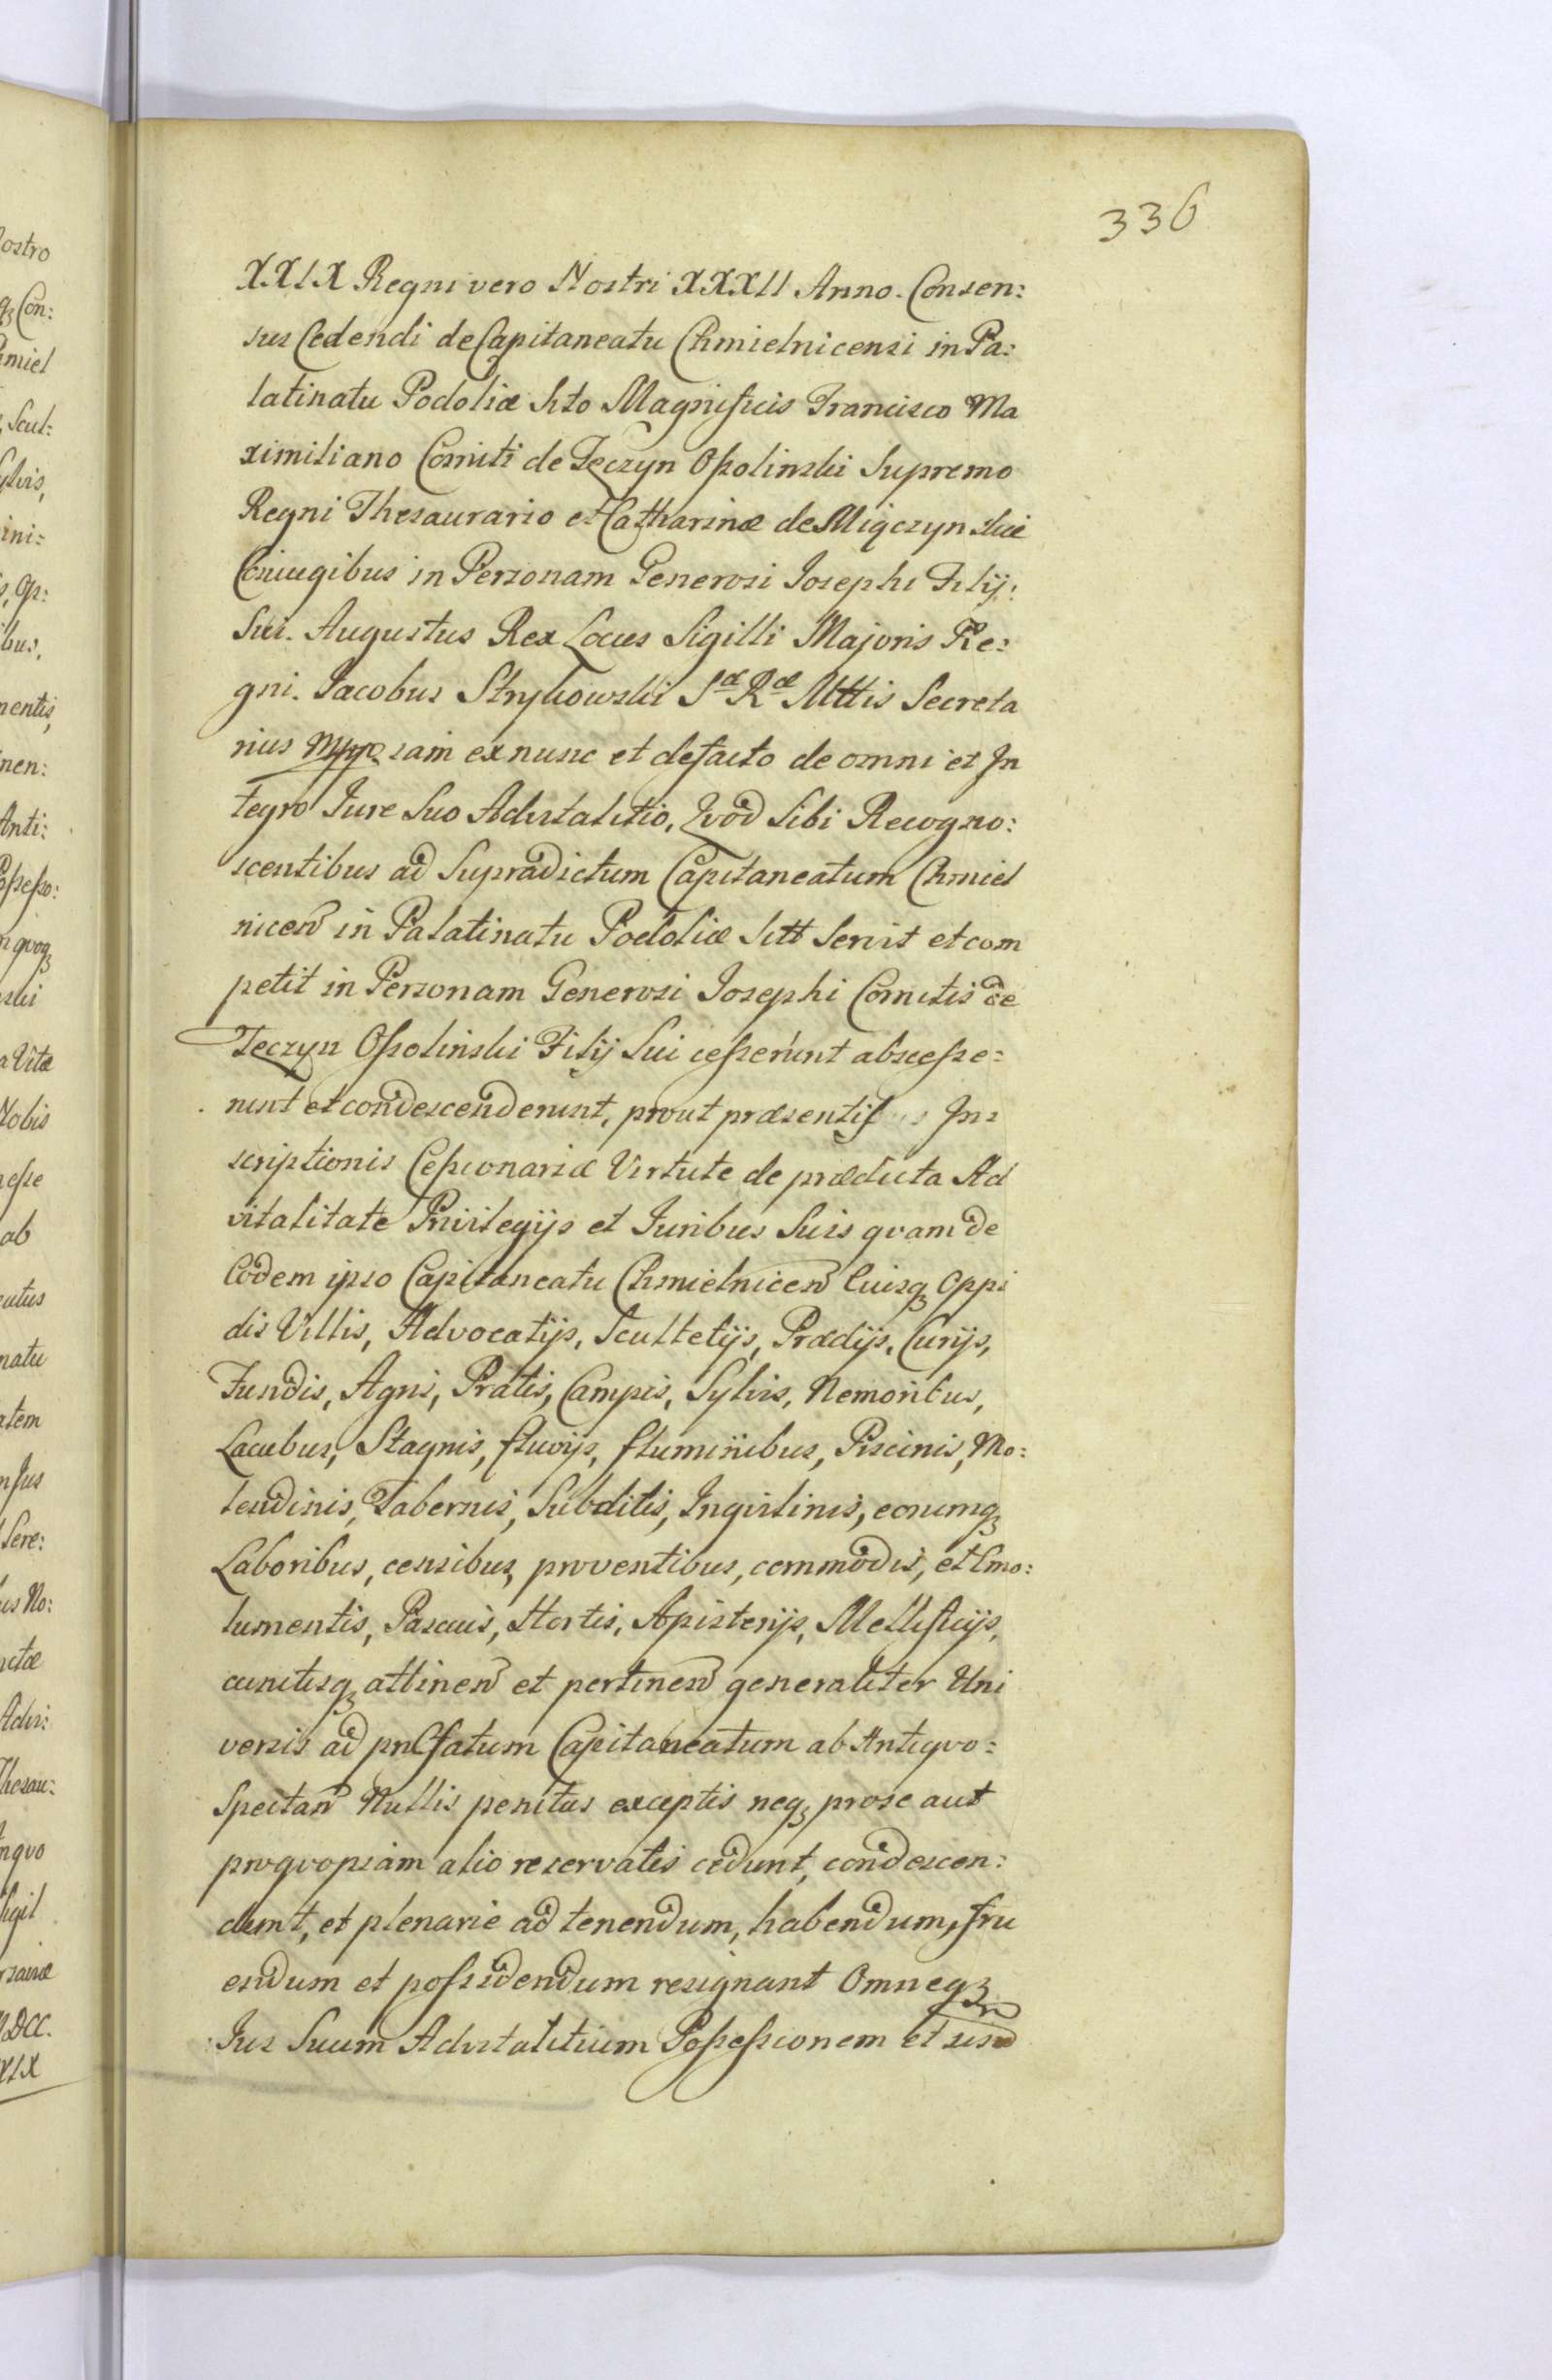 336
XXIX Regni vero Nostri XXXII Anno. Consen:
sus Cedendi de Capitaneatu Chmielnicensi in Pa:
latinatu Podoliæ Sito Magnificis Francisco Ma
ximiliano Comiti de Tęczyn Ossolinski Supremo
Regni Thesaurario et Catharinæ de Miączynskie
Coniugibus in Personam Generosi Josephi Filij:
Sui. Augustus Rex Locus Sigilli Majoris Re:
gni. Jacobus Strykowski Sæ Ræ Mttis Secreta
rius mpp iam ex nunc et defacto de omni et In
tegro Jure Suo Advitalitio, Qvod Sibi Recogno:
scentibus ad Supradictum Capitaneatum Chmiel
nicen in Palatinatu Podoliæ Sitt Servit et com
petit in Personam Generosi Josephi Comitis de
Tęczyn Ossolinski Filij Sui cesserunt abscesse:
runt et condescenderunt, prout præsentis In:
scriptionis Cessionariæ Virtute de prædicta Ad
vitalitate Privilegijs et Juribus Suis qvam de
Eodem ipso Capitaneatu Chmielnicen Eiusq Oppi
dis Villis, Advocatijs, Scultetijs, Prædijs, Curijs,
Fundis, Agris, Pratis, Campis, Sylvis, Nemoribus,
Lacubus, Stagnis, fluvijs, fluminibus, Piscinis, Mo:
lendinis, Tabernis, Subditis, Inqvilinis, eorumq
Laboribus, censibus, proventibus, commodis, et Emo:
lumentis, Pascuis, Hortis, Apisterijs, Mellificijs,
cunctisq attinen et pertinen generaliter Uni
versis ad præfatum Capitaneatum ab Antiqvo:
Spectan Nullis penitus exceptis neq pro se aut
pro qvopiam alio reservatis cedunt, condescen:
dunt, et plenarie ad tenendum, habendum, fru
endum et possidendum resignant Omneq
Jus Suum Advitalitium Possessionem et